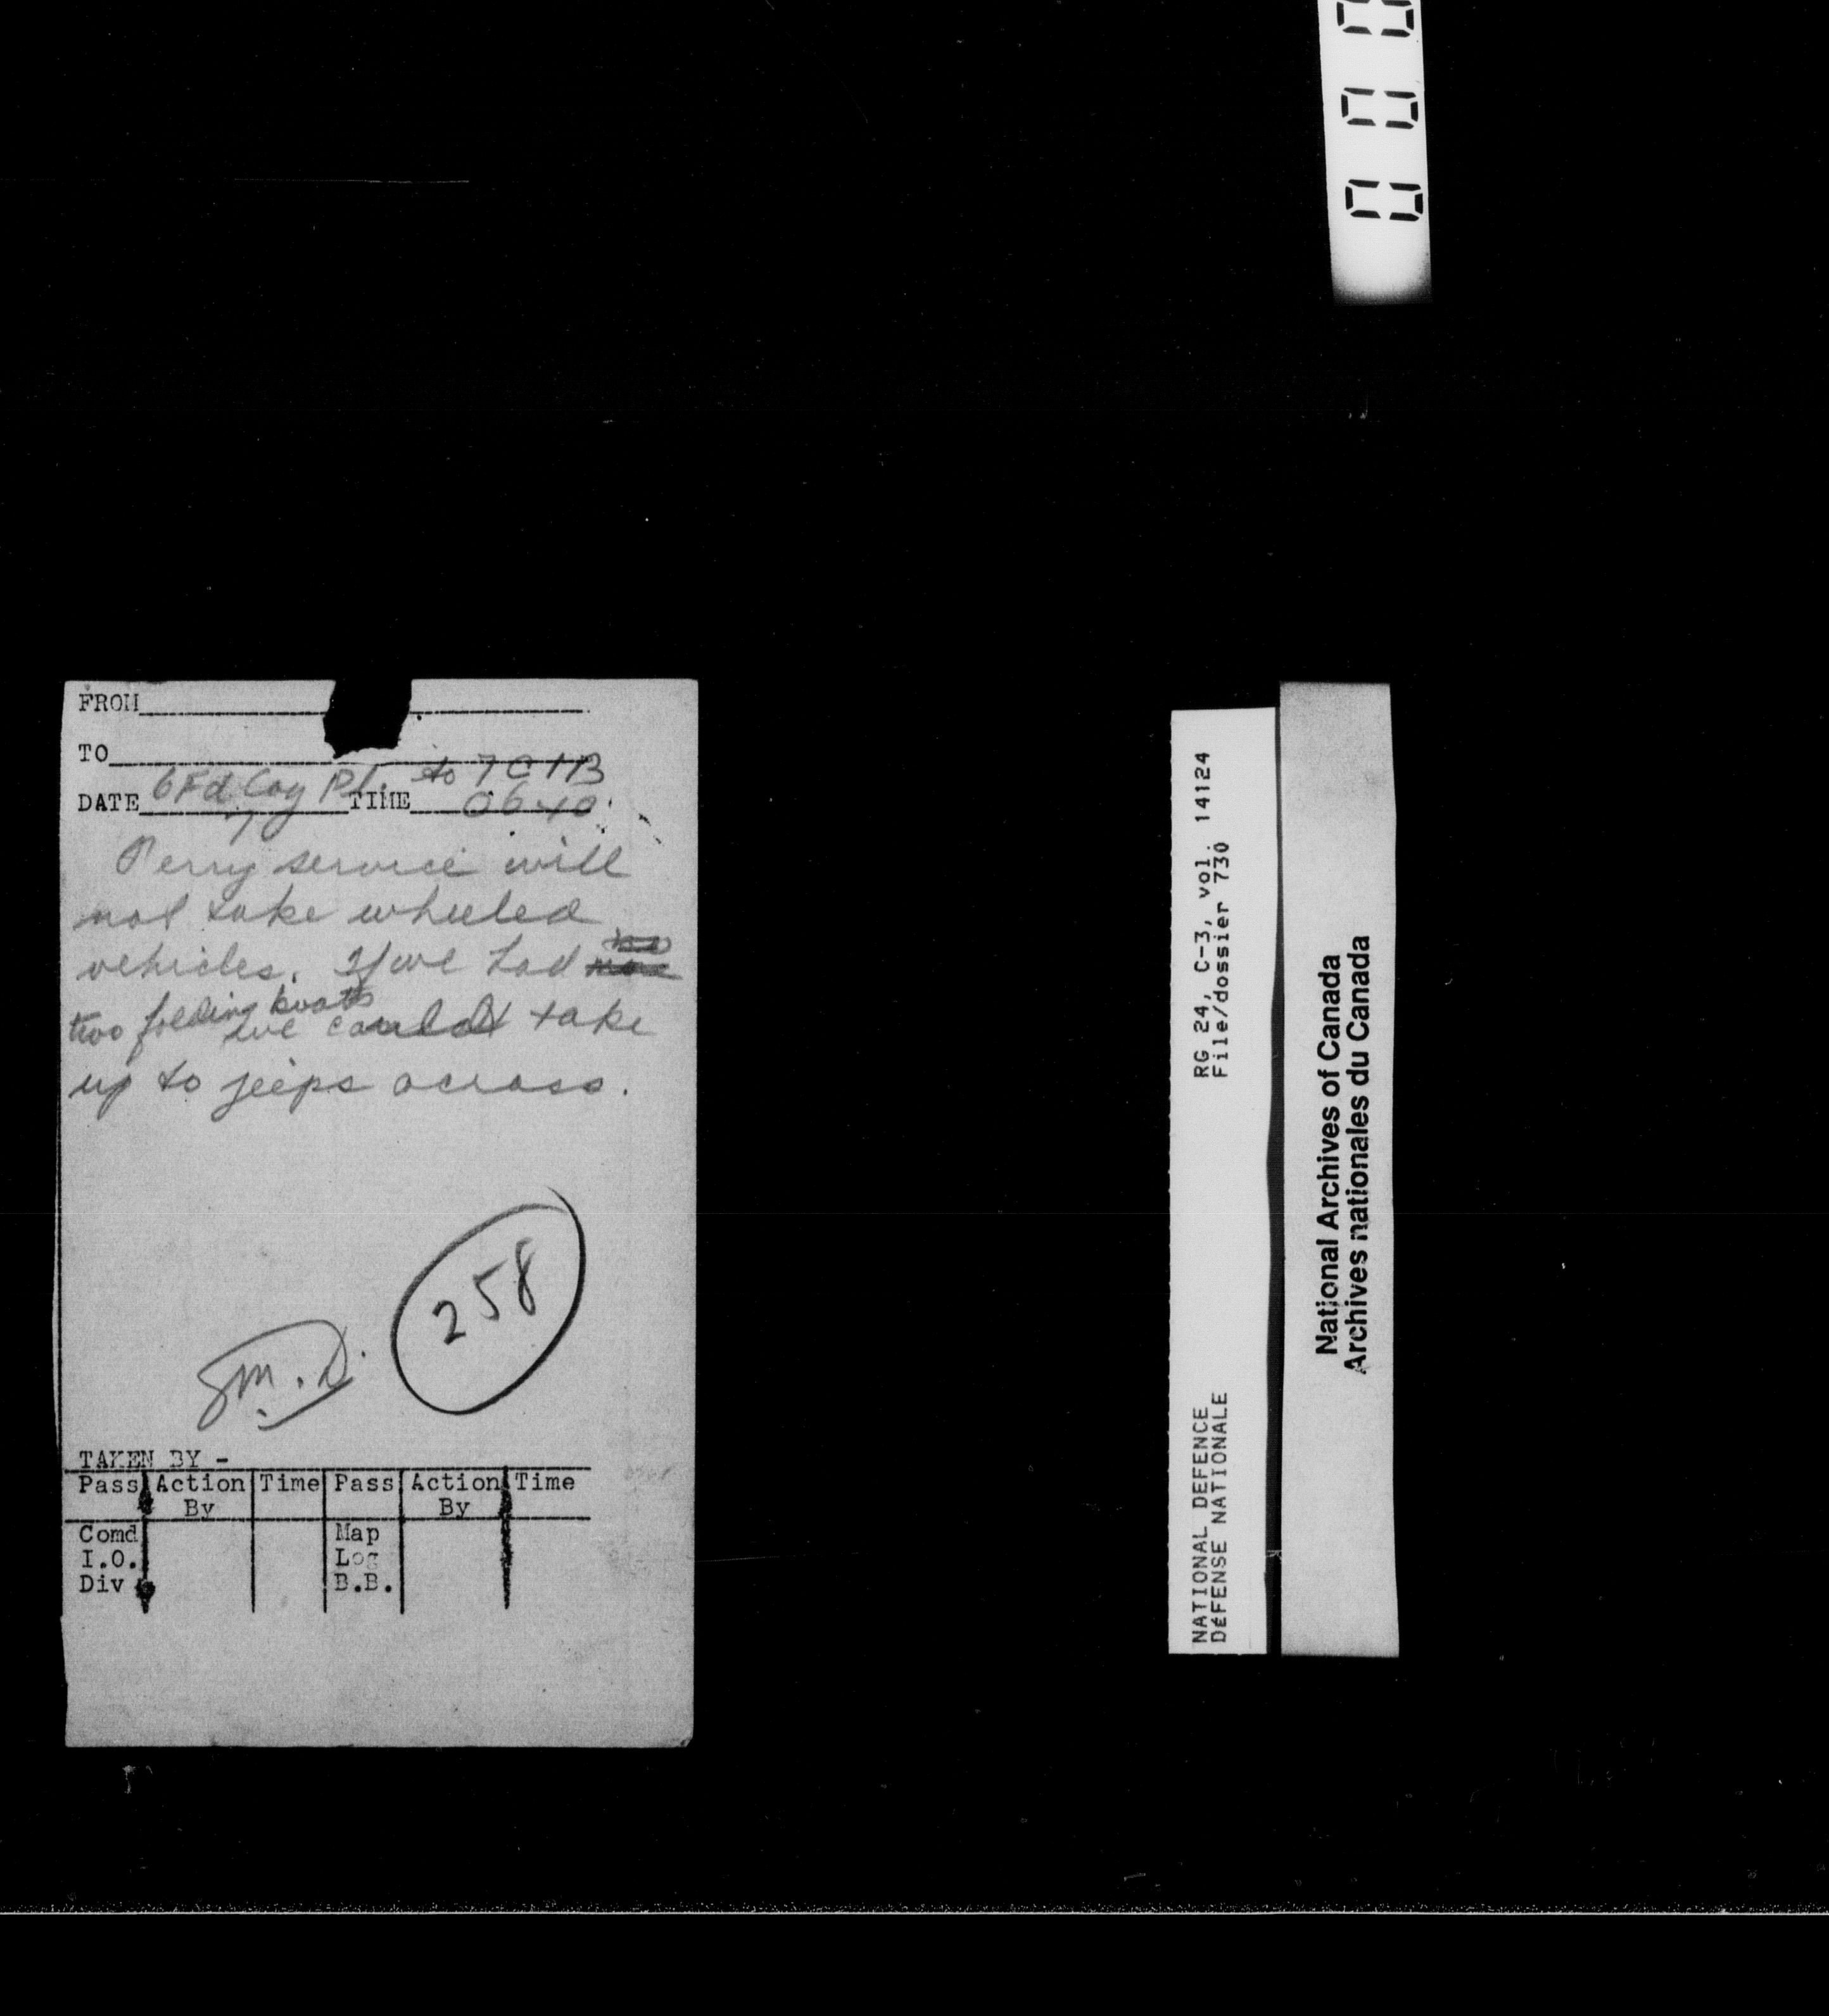 FROM
TO
6 Fd Coy Pl. to 7 CIB
DATE TIME 0640
Ferry service will
not take wheeled
vehicles. If we had
two folding boats
we could take
up to jeeps across.
258
TAKEN BY -
Pass Action By Time Pass Action By Time
Comd Map
I.O. Log
Div B.B.
RG 24, C-3, vol. 14124
File/dossier 730
NATIONAL DEFENCE
DéFENSE NATIONALE
National Archives of Canada
Archives nationales du Canada